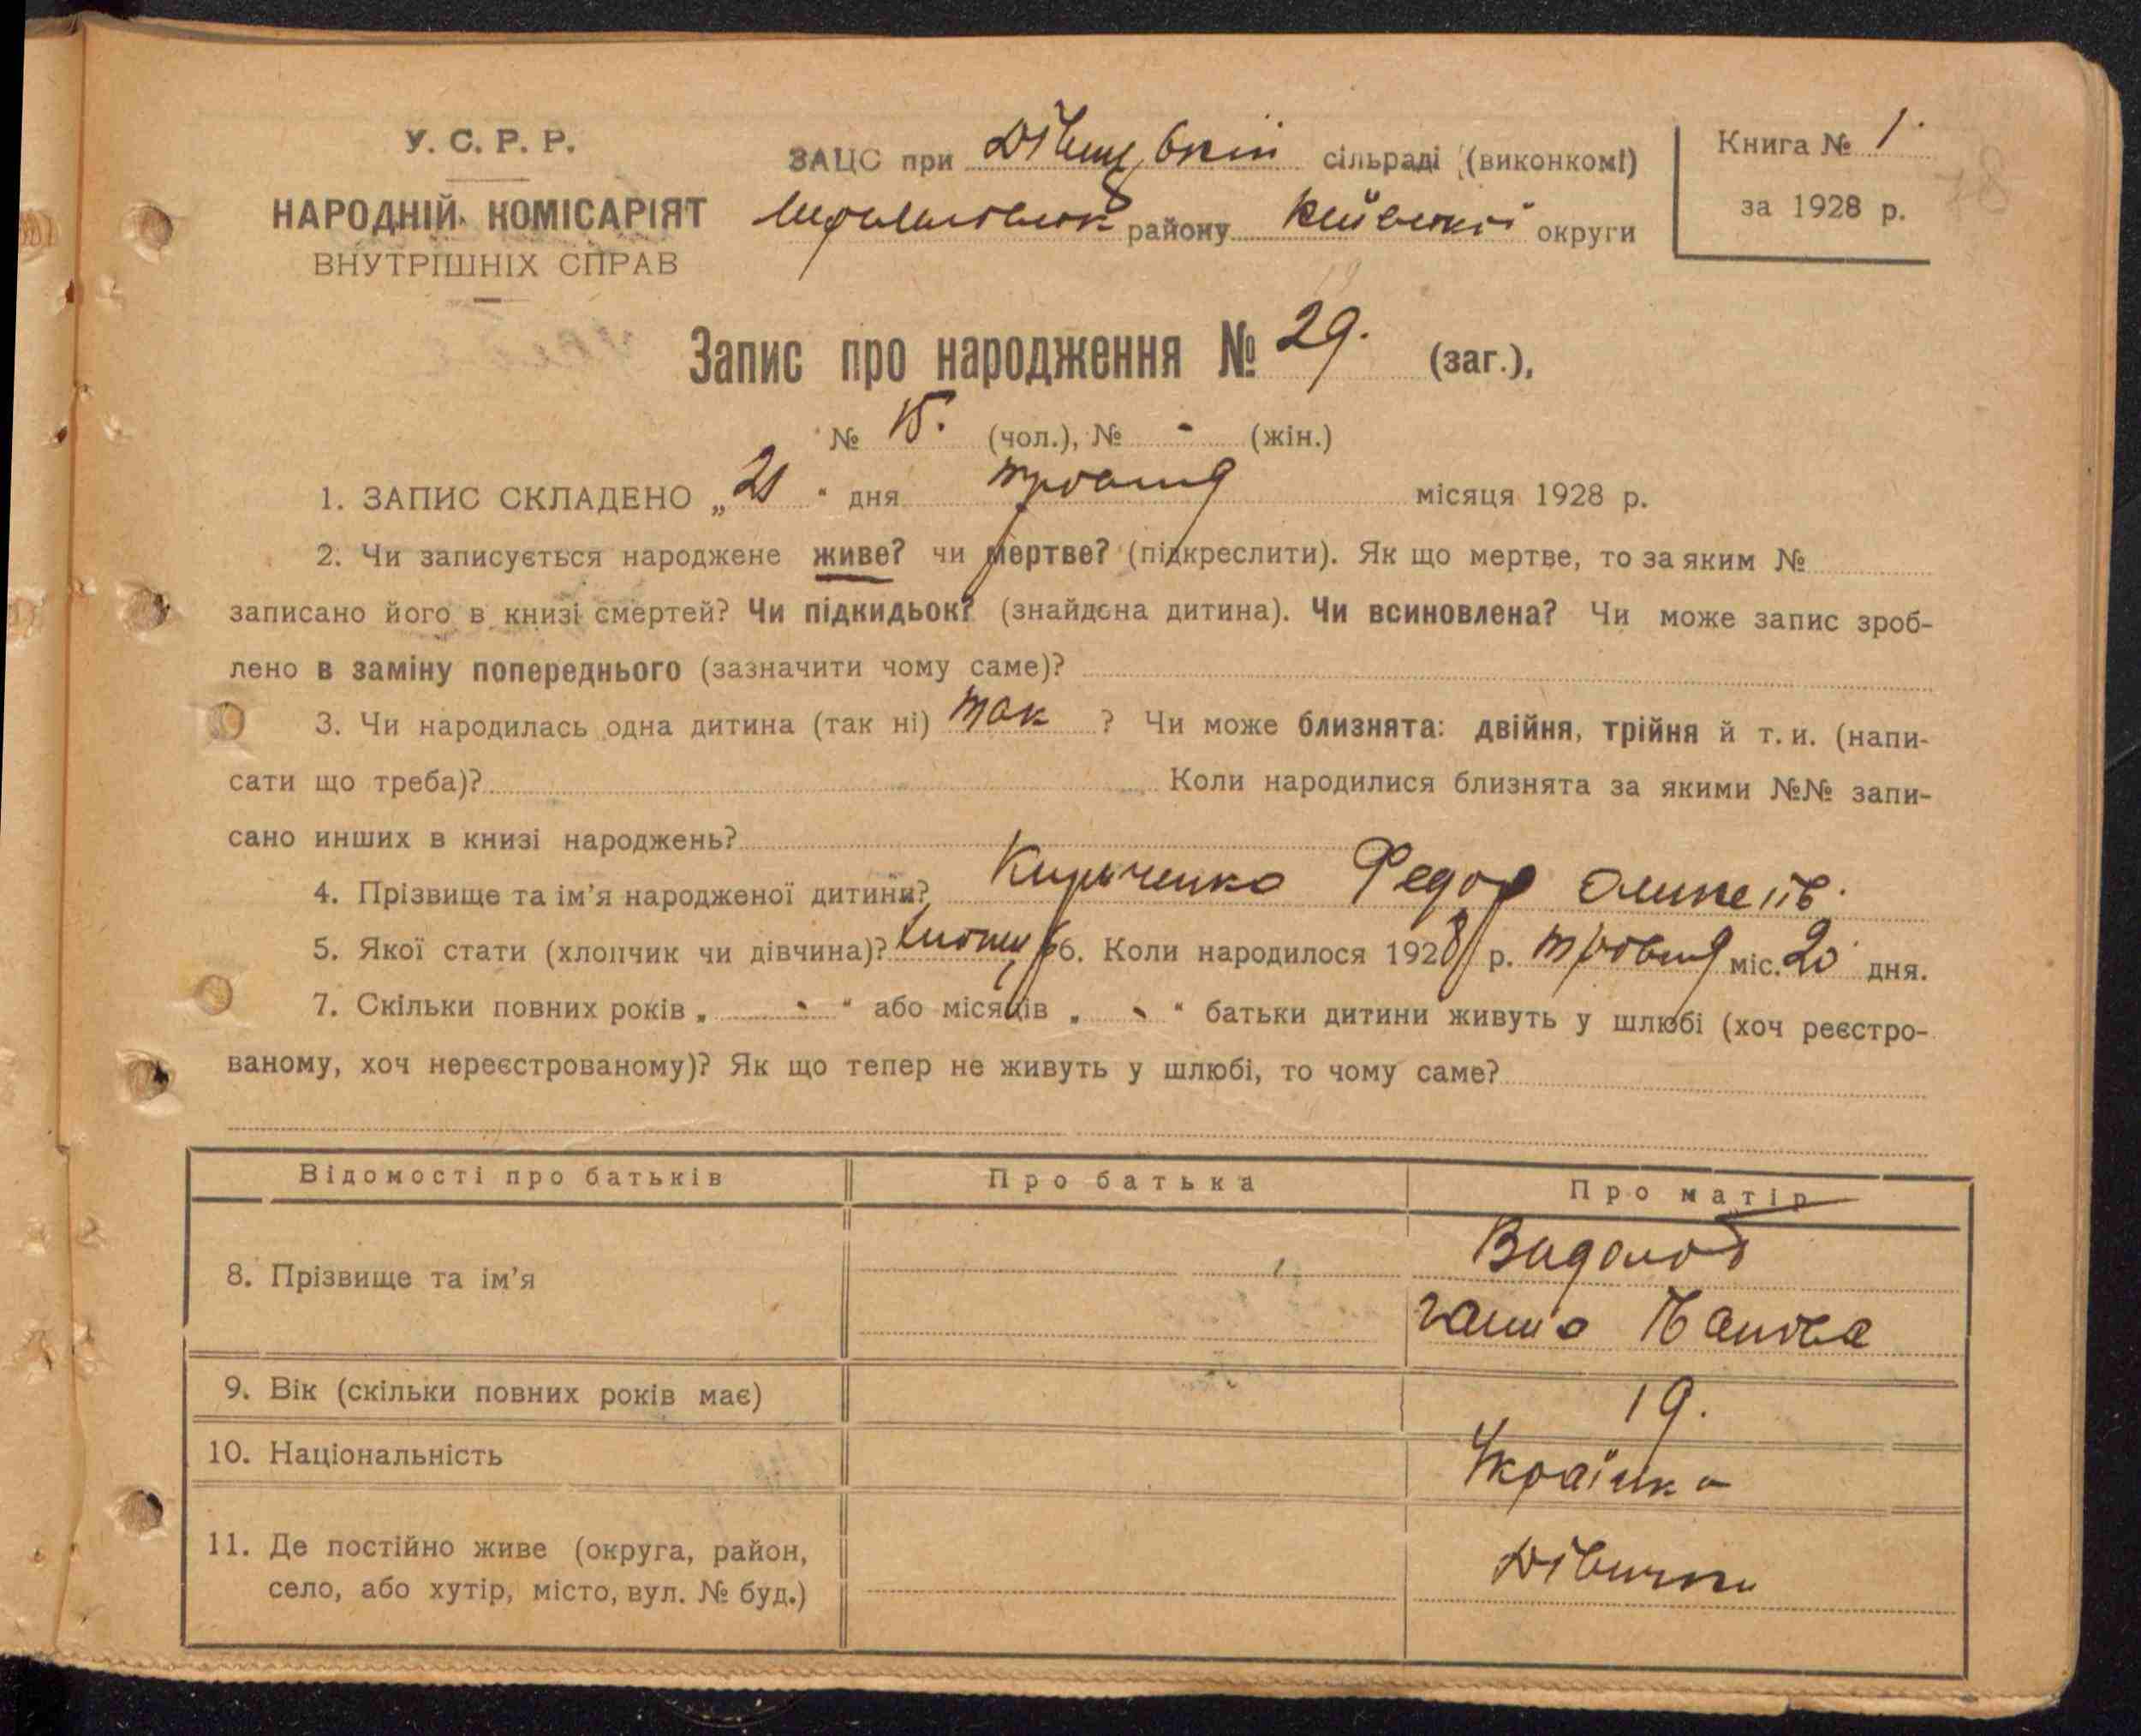 У. С. Р. Р.
НАРОДНІЙ КОМІСАРІЯТ
ВНУТРІШНІХ СПРАВ
ЗАЦС при Дівицькій сільраді (виконкомі)
району Київської округи
Книга № 1
за 1928 р.
Запис про народження № 29. (заг.),
№ 15. (чол.), № - (жін.)
1. ЗАПИС СКЛАДЕНО „21“ дня травня місяця 1928 р.
2. Чи записується народжене живе? чи мертве? (підкреслити). Як що мертве, то за яким №
записано його в книзі смертей? Чи підкидьок? (знайдена дитина). Чи всиновлена? Чи може запис зроб-
лено в заміну попереднього (зазначити чому саме)?
3. Чи народилась одна дитина (так ні) так ? Чи може близнята: двійня, трійня й т. и. (напи-
сати що треба)? Коли народилися близнята за якими №№ запи-
сано инших в книзі народжень?
4. Прізвище та ім’я народженої дитини? Кириченко Федор
5. Якої стати (хлопчик чи дівчина)? хлопець 6. Коли народилося 1928 р. травня міс. 20 дня.
7. Скільки повних років „ - “ або місяців „ - “ батьки дитини живуть у шлюбі (хоч реєстро-
ваному, хоч нереєстрованому)? Як що тепер не живуть у шлюбі, то чому саме?
Відомості про батьків
Про батька
Про матір
8. Прізвище та ім’я
Ганна
9. Вік (скільки повних років має)
19.
10. Національність
Українка
11. Де постійно живе (округа, район,
село, або хутір, місто, вул. № буд.)
Дівички